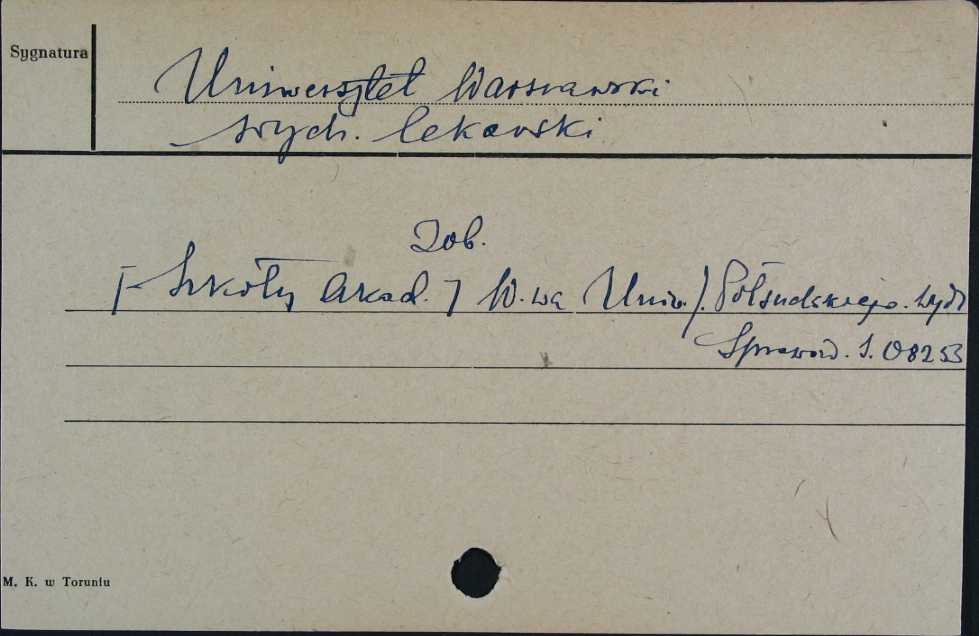 Sygnatura
Uniwersytet Warszawski
wydz. lekarski
Zob.
[-Szkoły Akad.] W-wa Univ. J. Piłsudskiego. wydz
Sprawozd. S. 08253
M. K. w Toruniu